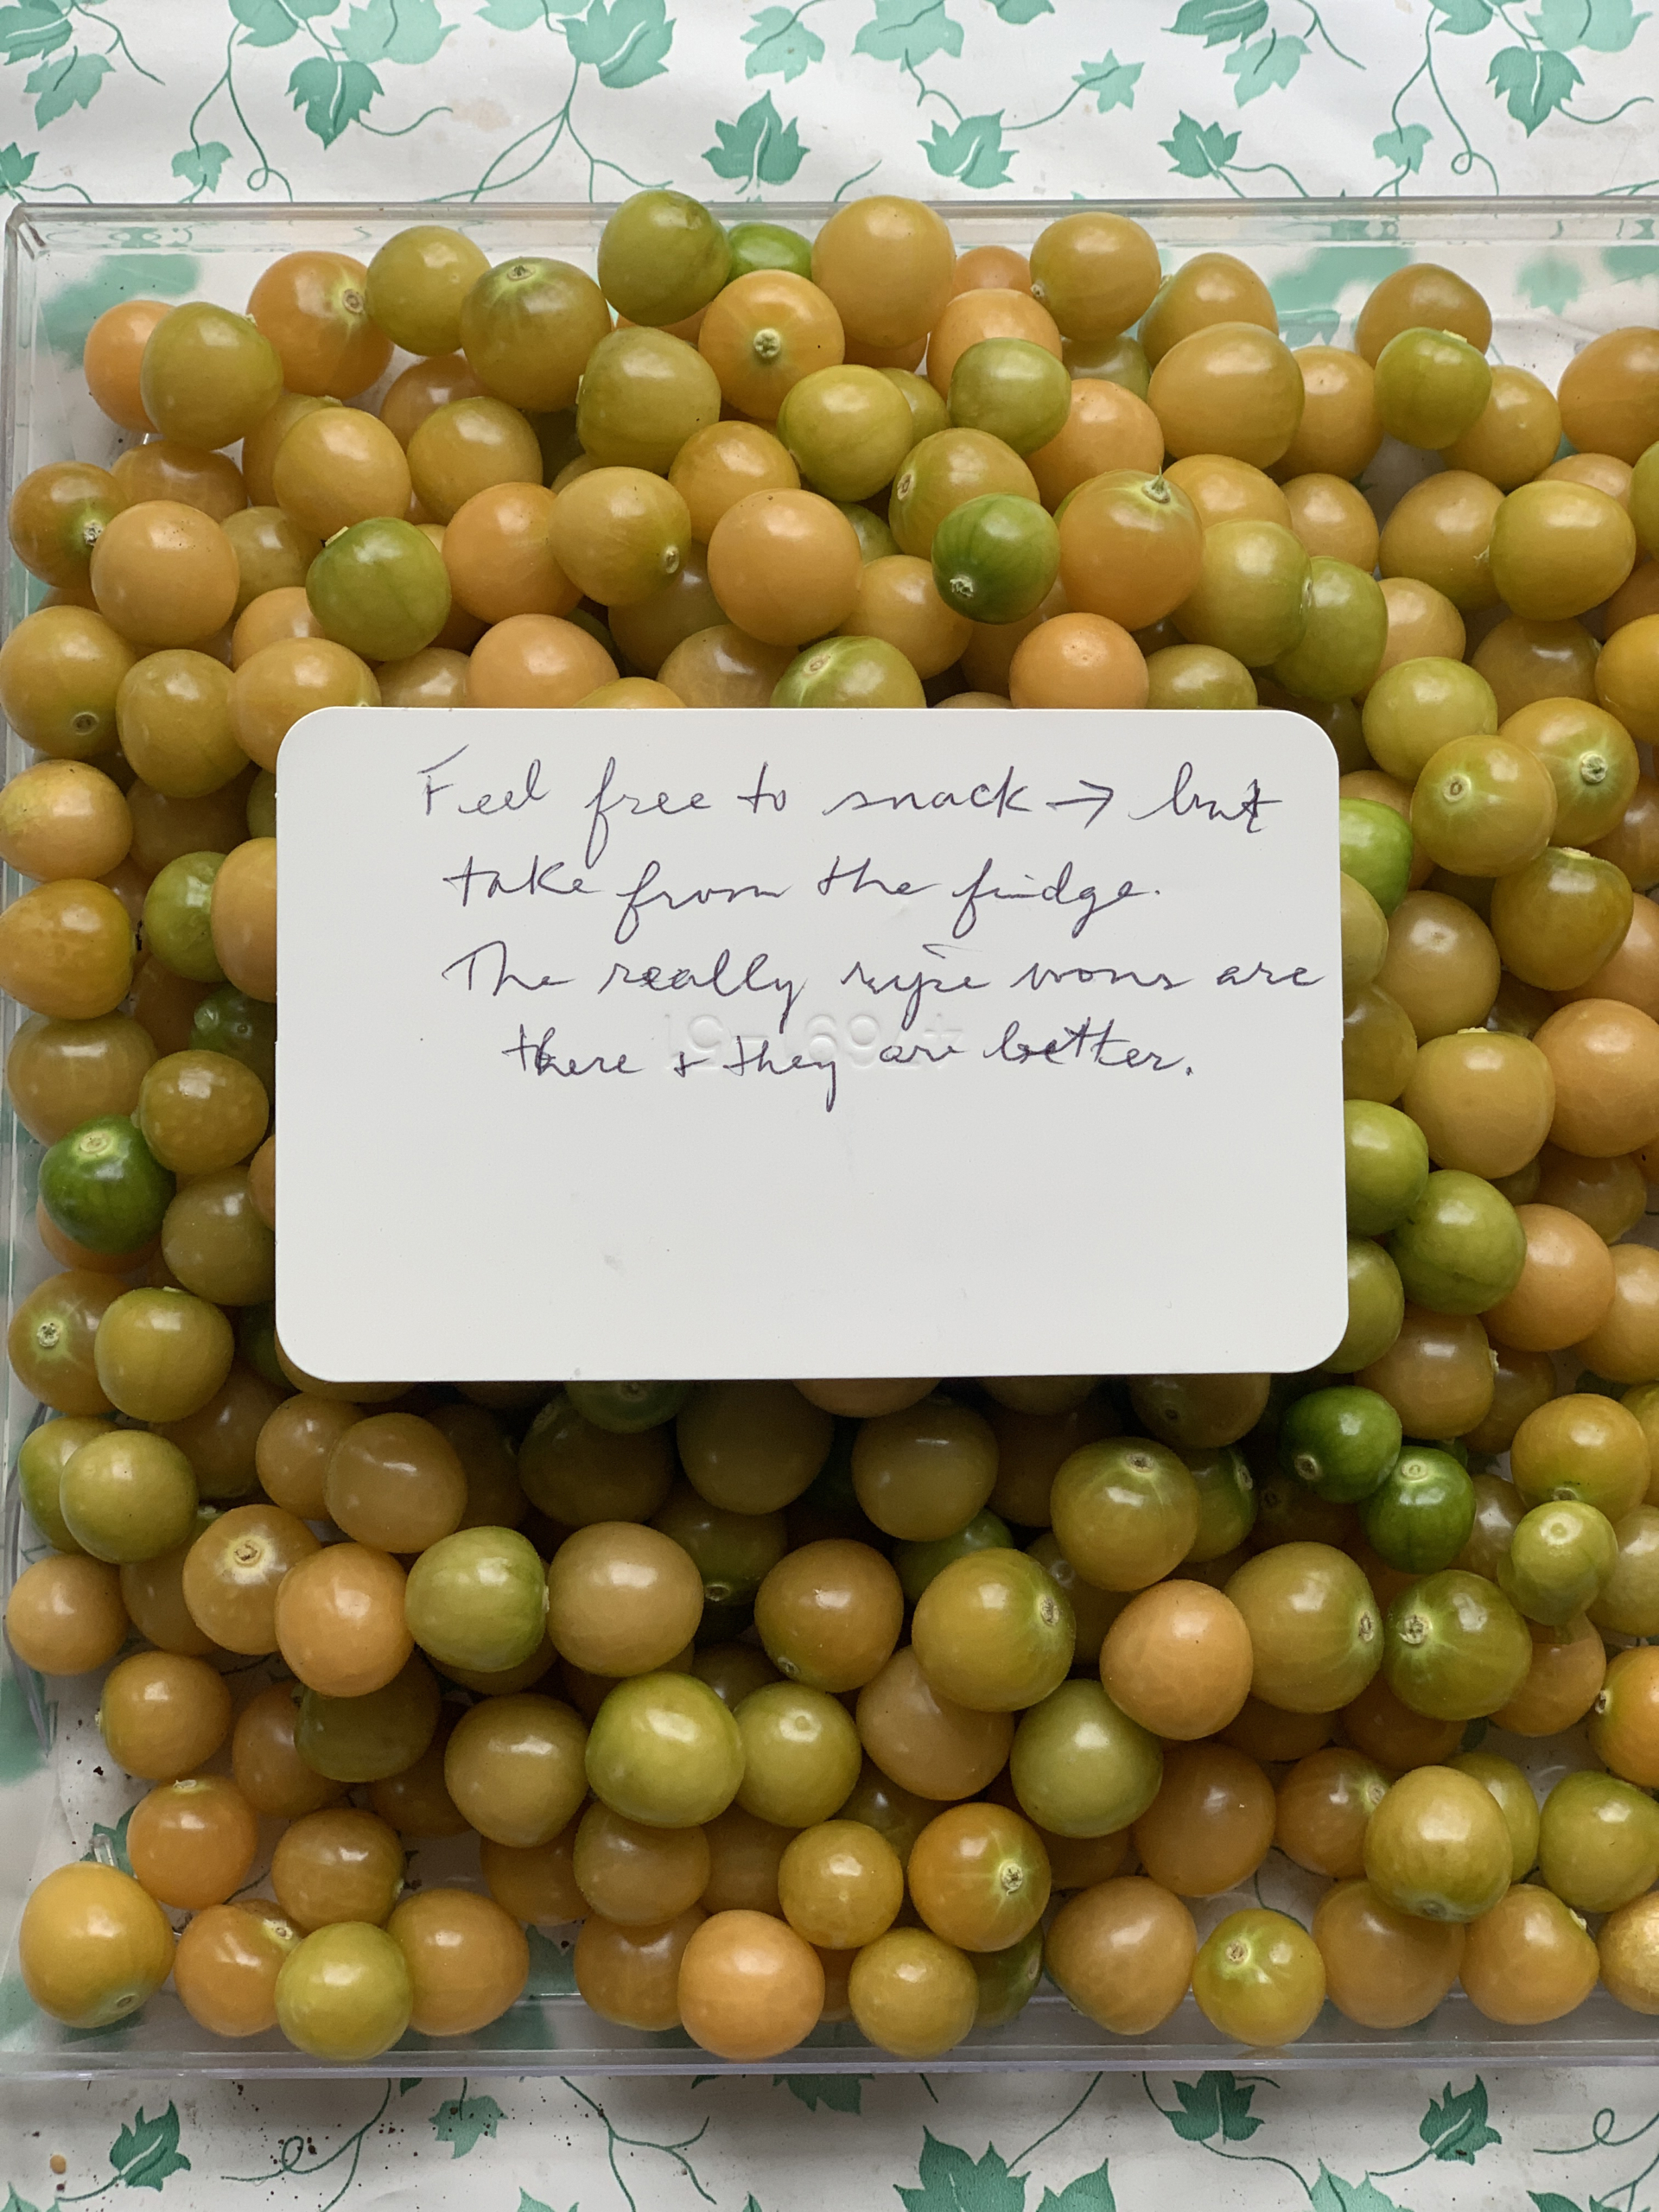 Feel free to snack → but
take from the fridge.
The really ripe wons are
there & they are better.